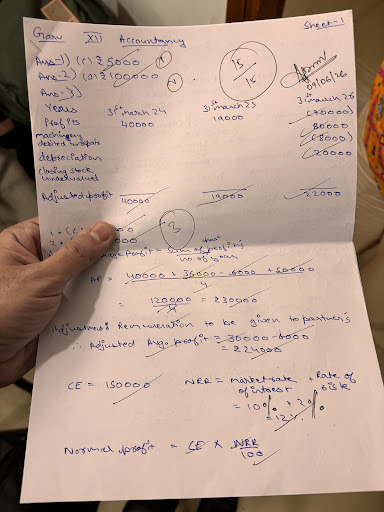 Sheet-1
XII Accountancy
15
15
Ans-1) (c) ₹ 5000
Ans-2) (d) ₹ 100000
Ans-3)
09/06/26
Years 31st march 24 31st march 25 31st march 26
Profits 40000 19000 (70000)
machinery 80000
debited to repairs (8000)
depreciation 20000
closing stock
undervalued
Adjusted profit 40000 19000 22000
3
no of year
AP = 40000 + 36000 - 6000 + 50000
4
= 120000 = ₹30000
4
Adjustment Remuneration to be given to partner's
∴ Adjusted Avg. profit = 30000 - 6000
= ₹ 24000
CE = 150000 NRR = market rate of interest + Rate of risk
= 10% + 2%
= 12%
Normal profit = CE × NRR
100